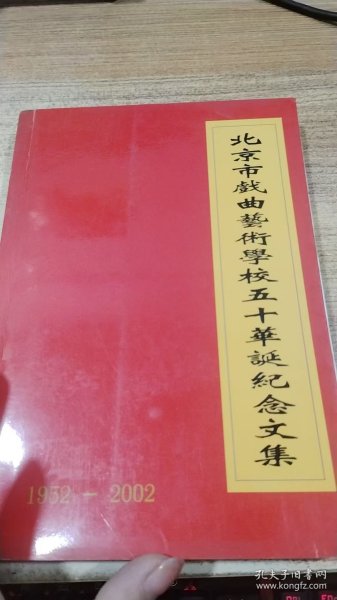 北京市戲曲藝術學校五十華誕紀念文集
1952-2002
孔夫子旧书网
www.kongfz.com